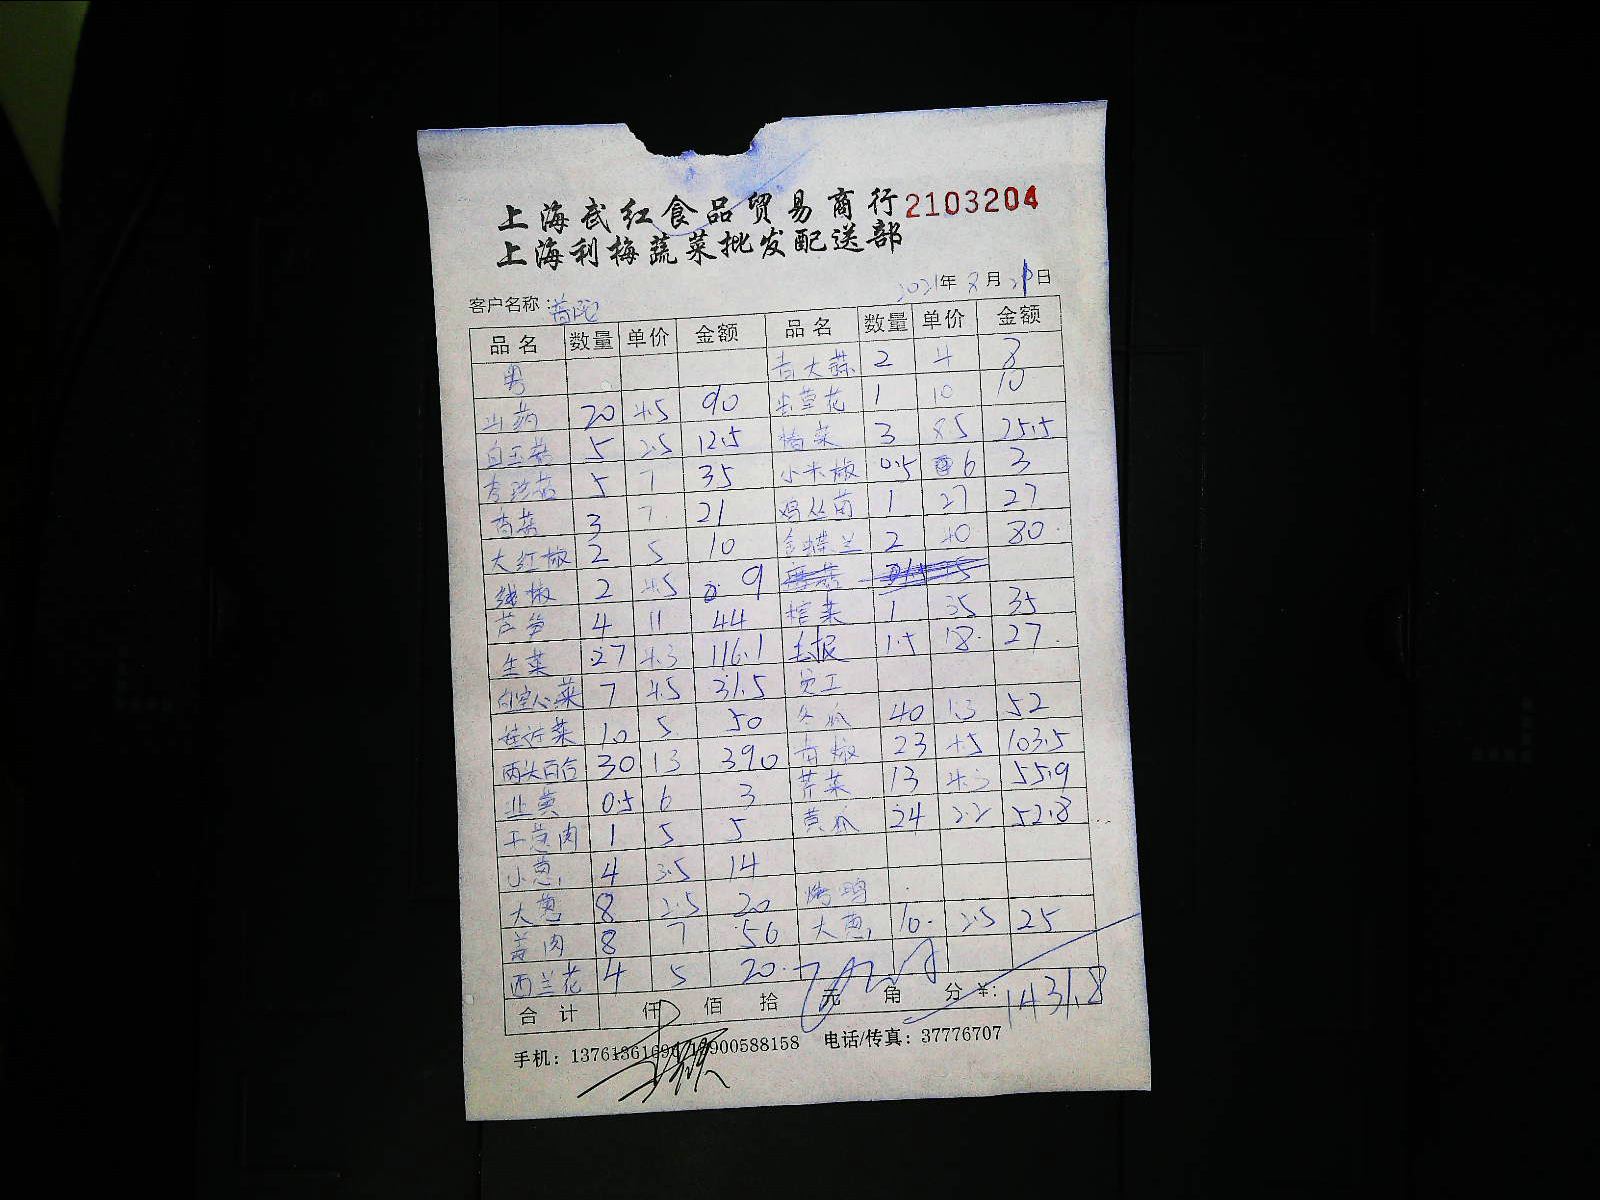 上海武红食品贸易商行2103204
上海利梅蔬菜批发配送部
2021年8月21日
客户名称：普陀
品名 数量 单价 金额 品名 数量 单价 金额
青大蒜 2 4 8
山药 20 4.5 90 10 10
白玉菇 5 2.5 12.5 3 8.5 25.5
杏珍菇 5 7 35 小米椒 0.5 6 3
香菜 3 7 21 鸡丛菌 1 27 27
大红椒 2 5 10 金蝶兰 2 40 80
线椒 2 4.5 9
芦笋 4 11 44 榨菜 1 35 35
生菜 27 4.3 116.1 1.5 18 27
白空心菜 7 4.5 31.5 员工
娃娃菜 10 5 50 冬瓜 40 1.3 52
两头百合 30 13 390 青椒 23 4.5 103.5
韭黄 0.5 6 3 芹菜 13 4.3 55.9
干葱肉 1 5 5 黄瓜 24 2.2 52.8
小葱 4 3.5 14
大葱 8 2.5 20 烤鸭
姜肉 8 7 56 大葱 10 2.5 25
西兰花 4 5 20
合计 仟 佰 拾 元 角 分 ¥: 1431.8
电话/传真：37776707